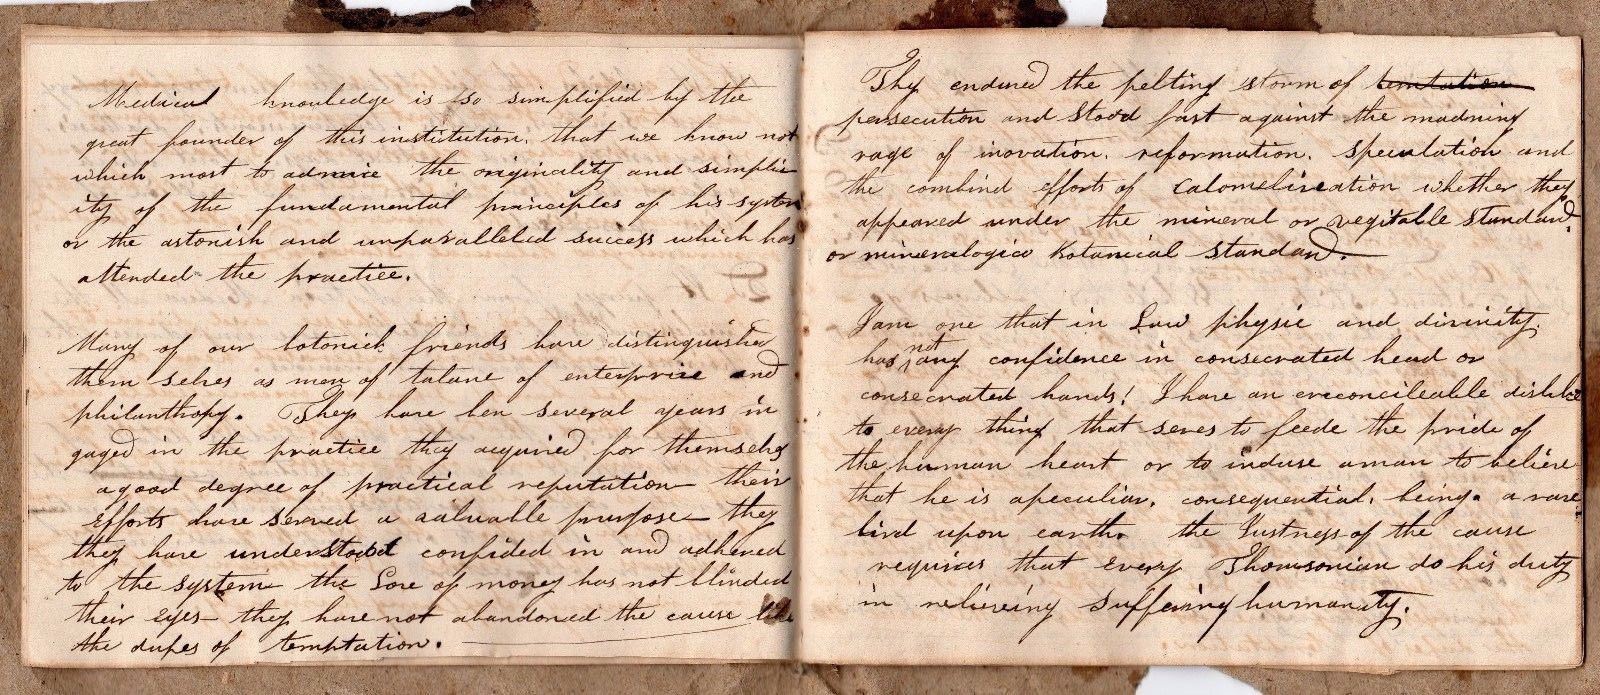 Medical knowledge is so simplified by the
great founder of this institution. that we know not
which most to admire the originality and simplic
ity of the fundamental principles of his system
or the astonish and unparalleled success which has
attended the practice.
Many of our botonick friends have distinguished
them selves as men of talane of enterprise and
philanthopy. They have ben several years in
gaged in the practice they aquired for themselves
a good degree of practical reputation their
efforts have served a valuable purpose they
they have understood confided in and adhered
to the system the Love of money has not blinded
their eyes they have not abandoned the cause like
the dupes of temptation.
They endured the pelting storm of temtation
persecution and Stood fast against the madning
rage of inovation. reformation. Speculation and
the combind efforts of Calomeliseation whether they
appeared under the mineral or vegitable Standard.
or mineralogico Botanical Standard.
I am one that in Law physic and divinity.
has not any confidence in consecrated head or
consecrated hands! I have an ereconcileable dislike
to every thing that serves to feede the pride of
the human heart or to induse a man to believe
that he is a peculiar. consequential. being. a rare
bird upon earth. the Justness of the cause
requires that every Thomsonian do his duty
in relieveing Suffering humanity.